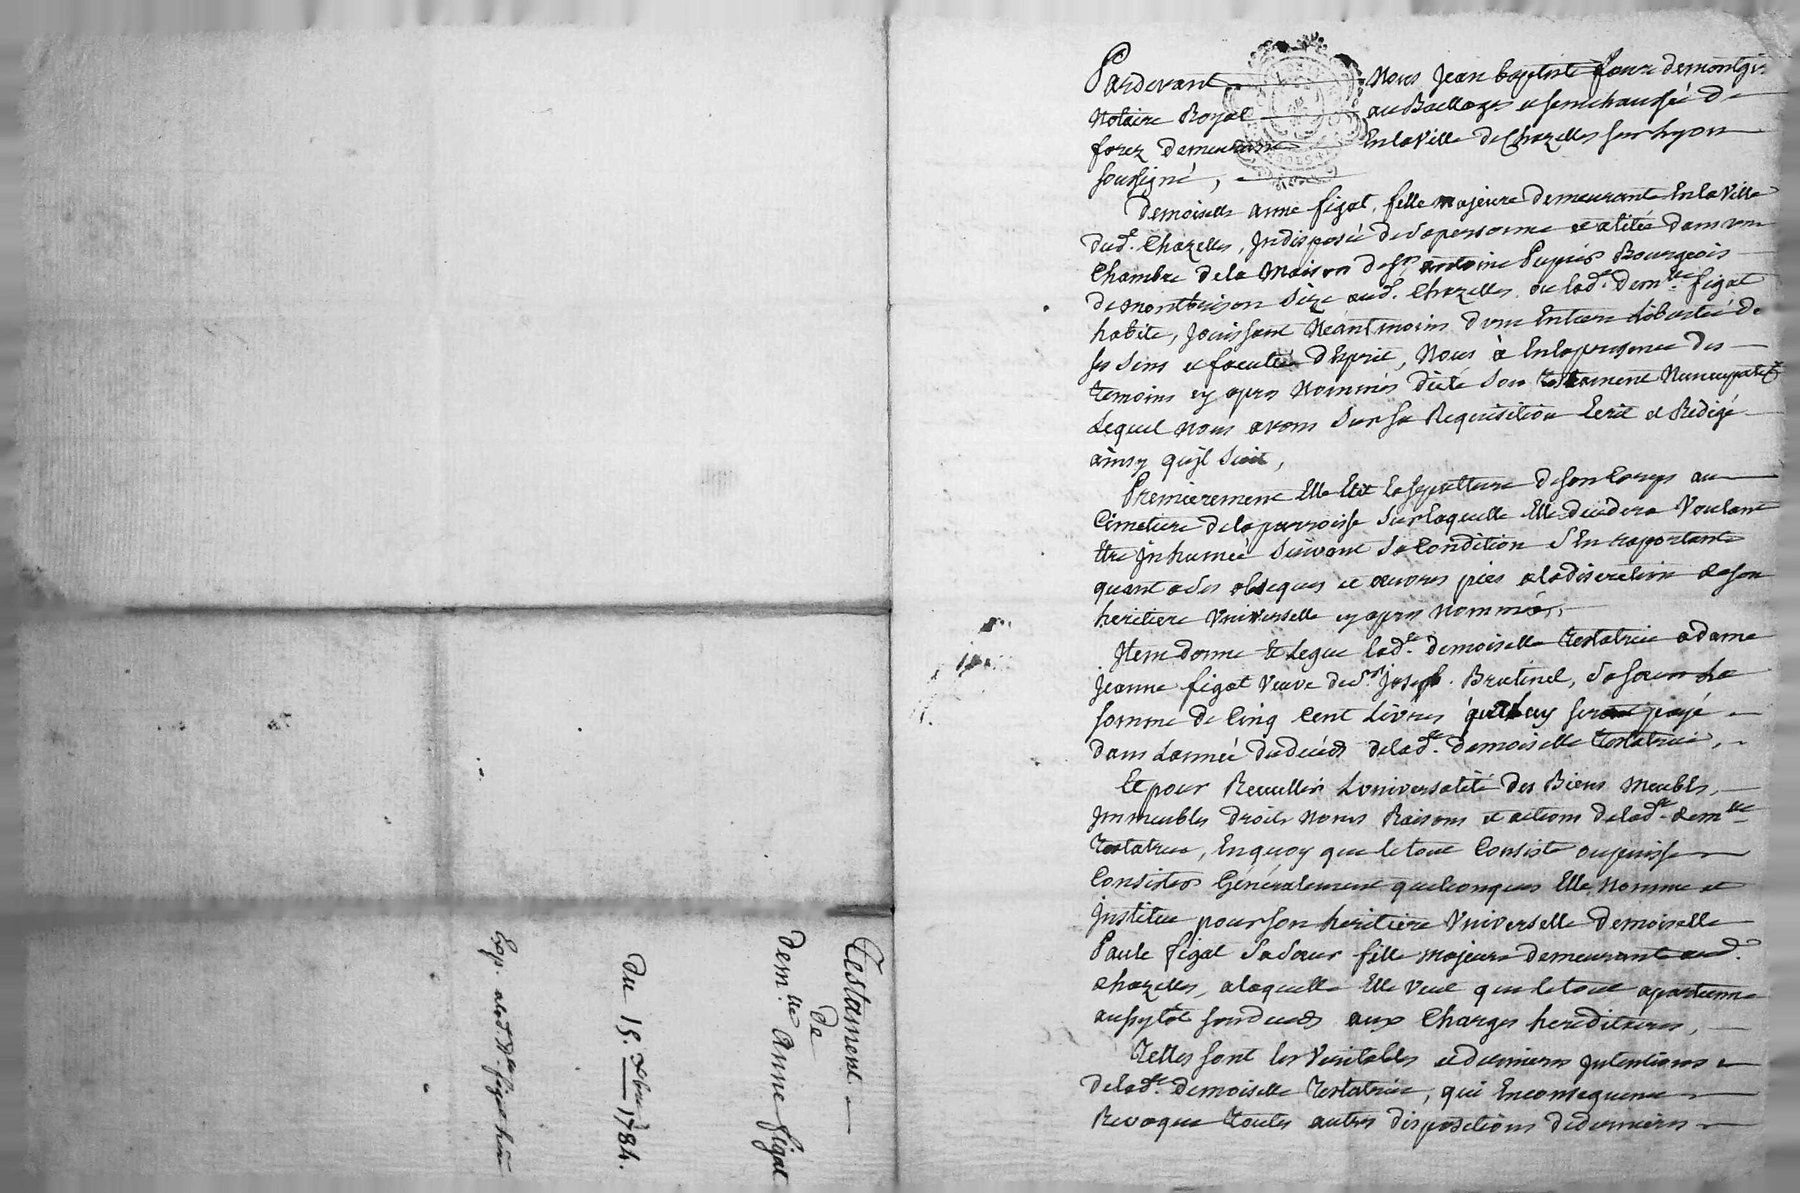 Pardevant Nous Jean baptiste four demontgi
Notaire Royal au Baillage et senechaussée De
forez demeurant En la Ville de Chazelles sur Lyon
soussigné,
Demoiselle anne figat, fille majeure demeurante En la Ville
dud. Chazelles, Indisposée de sa personne et alitée dans une
Chambre de la Maison de Sr. antoine Bourgeois
de montbrison size aud. Chazelles ou lad.e dem.lle figat
habite, Jouissant Neantmoins d'une Entiere Liberté de
ses sens et faculté d'Esprit, Nous à En la presence des
temoins cy apres Nommés dicté son testament Nuncupatif
Lequel nous avons sur sa Requisition Ecrit et Redigé
ainsy qu'jl suit,
Premierement Elle Elit la sepulture de son Corps au
Cimetiere de la parroisse sur laquelle Elle decedera Voulant
Etre Jnhumée suivant sa Condition S'En raportante
quant a ses obseques et œuvres pies a la discretion de son
heritiere Vniverselle cy apres nommée,
Jtem donne Et Legue lad.e demoiselle testatrice a dame
Jeanne figat Veuve de Sr. Joseph Brutinel, sa sœur La
somme de Cinq Cent Livres luy sera payé
dans L'année du decés de lad.e demoiselle testatrice,
Et pour Recueillir L'universalité des Biens Meubles,
Jmmeubles droits Noms Raisons et actions de lad.e dem.lle
testatrice, En quoy que le tout Consiste ou puisse
Consister Généralement quelconques Elle Nomme et
Jnstitue pour son heritiere Vniverselle demoiselle
Paule figat sa sœur fille majeure demeurante aud.
chazelles, a laquelle Elle veut que le tout apartienne
aussytôt son decés aux Charges hereditaires,
Telles sont les Veritables et dernieres Jntentions
de lad.e demoiselle testatrice, qui En consequence
Revoque toutes autres dispositions de derniere
Testament
de
dem.lle Anne figat
Du 15. Xbre 1784.
Exp. a lad. D.lle figat